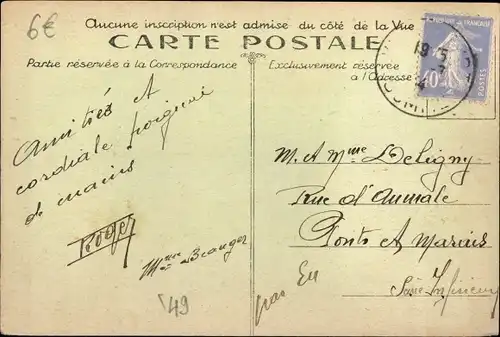 6€
Aucune inscription n'est admise du côté de la Vue
CARTE POSTALE
Partie réservée à la Correspondance
Exclusivement réservée
à l'Adresse
40c
POSTES
Amitiés et
cordiale poignée
de mains
Roger
Mme Béranger
M. et Mme Deligny
Rue d'Aumale
Ponts et Marais
par Eu
Seine Inférieure
49